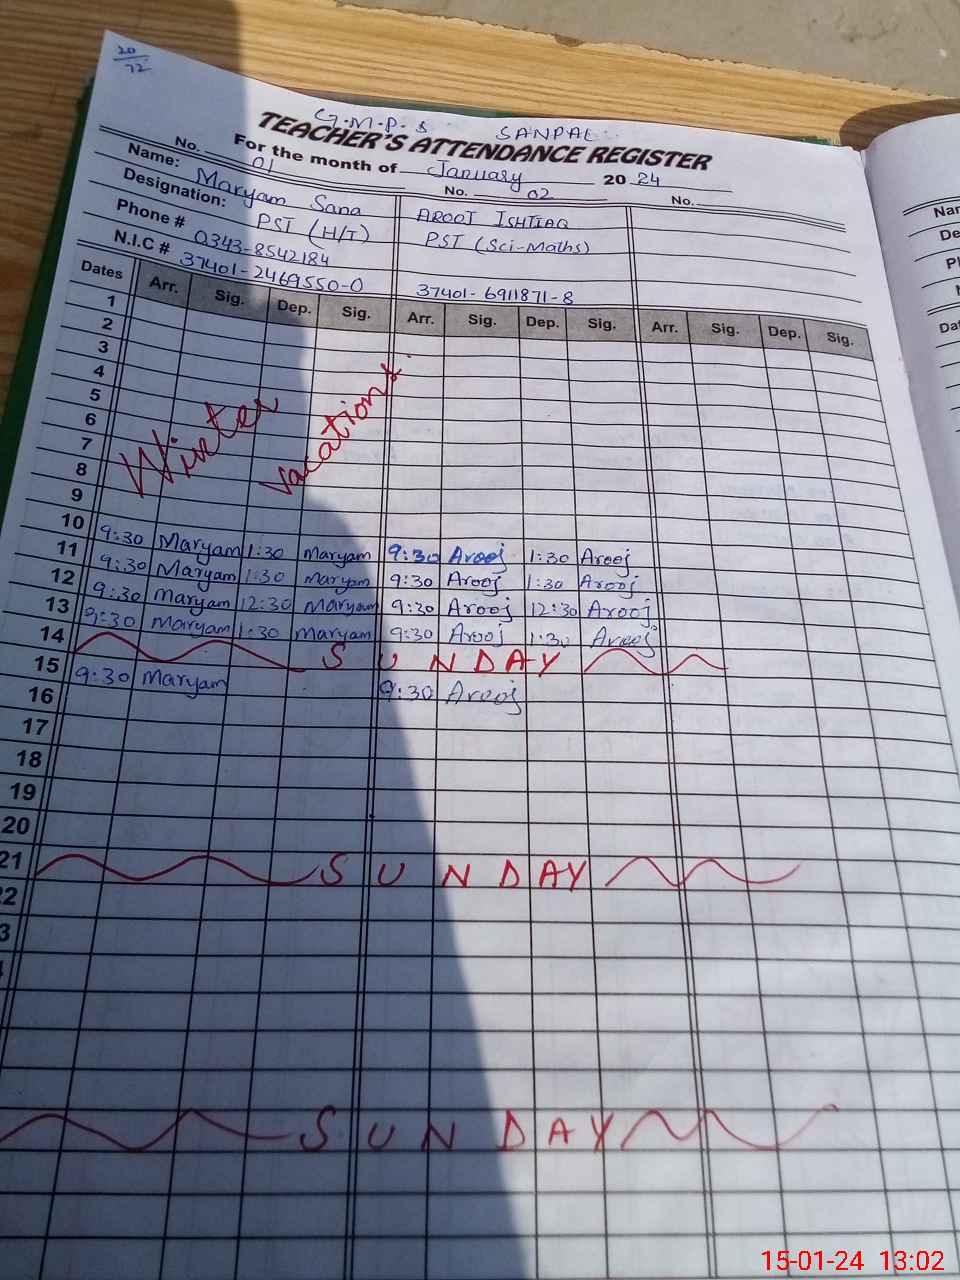 20
72
G.M.P.S SANPAL
TEACHER'S ATTENDANCE REGISTER
For the month of January 20 24
No. 01 No. 02 No.
Name: Maryam Sana AROOJ ISHTIAQ
Designation: PST (H/T) PST (Sci-Maths)
Phone # 0343-8542184
N.I.C # 37401-2469550-0 37401-6911871-8
Dates Arr. Sig. Dep. Sig. Arr. Sig. Dep. Sig. Arr. Sig. Dep. Sig.
1
2
3
4
5
6
7
8
9
Winter vacations
10 9:30 Maryam 1:30 Maryam 9:30 Arooj 1:30 Arooj
11 9:30 Maryam 1:30 Maryam 9:30 Arooj 1:30 Arooj
12 9:30 Maryam 12:30 Maryam 9:30 Arooj 12:30 Arooj
13 9:30 Maryam 1:30 Maryam 9:30 Arooj 1:30 Arooj
14 SUNDAY
15 9:30 Maryam 9:30 Arooj
16
17
18
19
20
21 SUNDAY
22
3
SUNDAY
Nar
De
Pl
Da
15-01-24 13:02